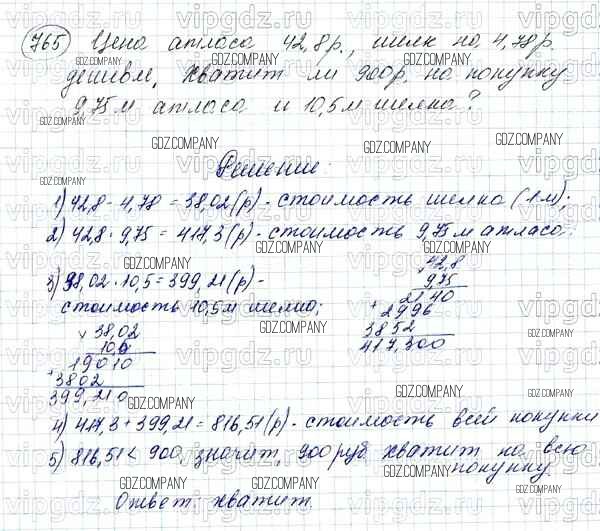 765 Цена атласа 42,8р., шелк на 4,78р.
дешевле, хватит ли 900р. на покупку
9,75м атласа и 10,5м шелка?
Решение:
1) 42,8 - 4,78 = 38,02(р) - стоимость шелка (1м);
2) 42,8 · 9,75 = 417,3(р) - стоимость 9,75м атласа;
3) 38,02 · 10,5 = 399,21(р) -
стоимость 10,5м шелка;
× 42,8
9,75
2140
+ 2996
3852
417,300
× 38,02
10,5
19010
+ 3802
399,210
4) 417,3 + 399,21 = 816,51(р) - стоимость всей покупки
5) 816,51 < 900, значит, 900 руб хватит на всю
покупку.
Ответ: хватит.
vipgdz.ru
GDZ.COMPANY